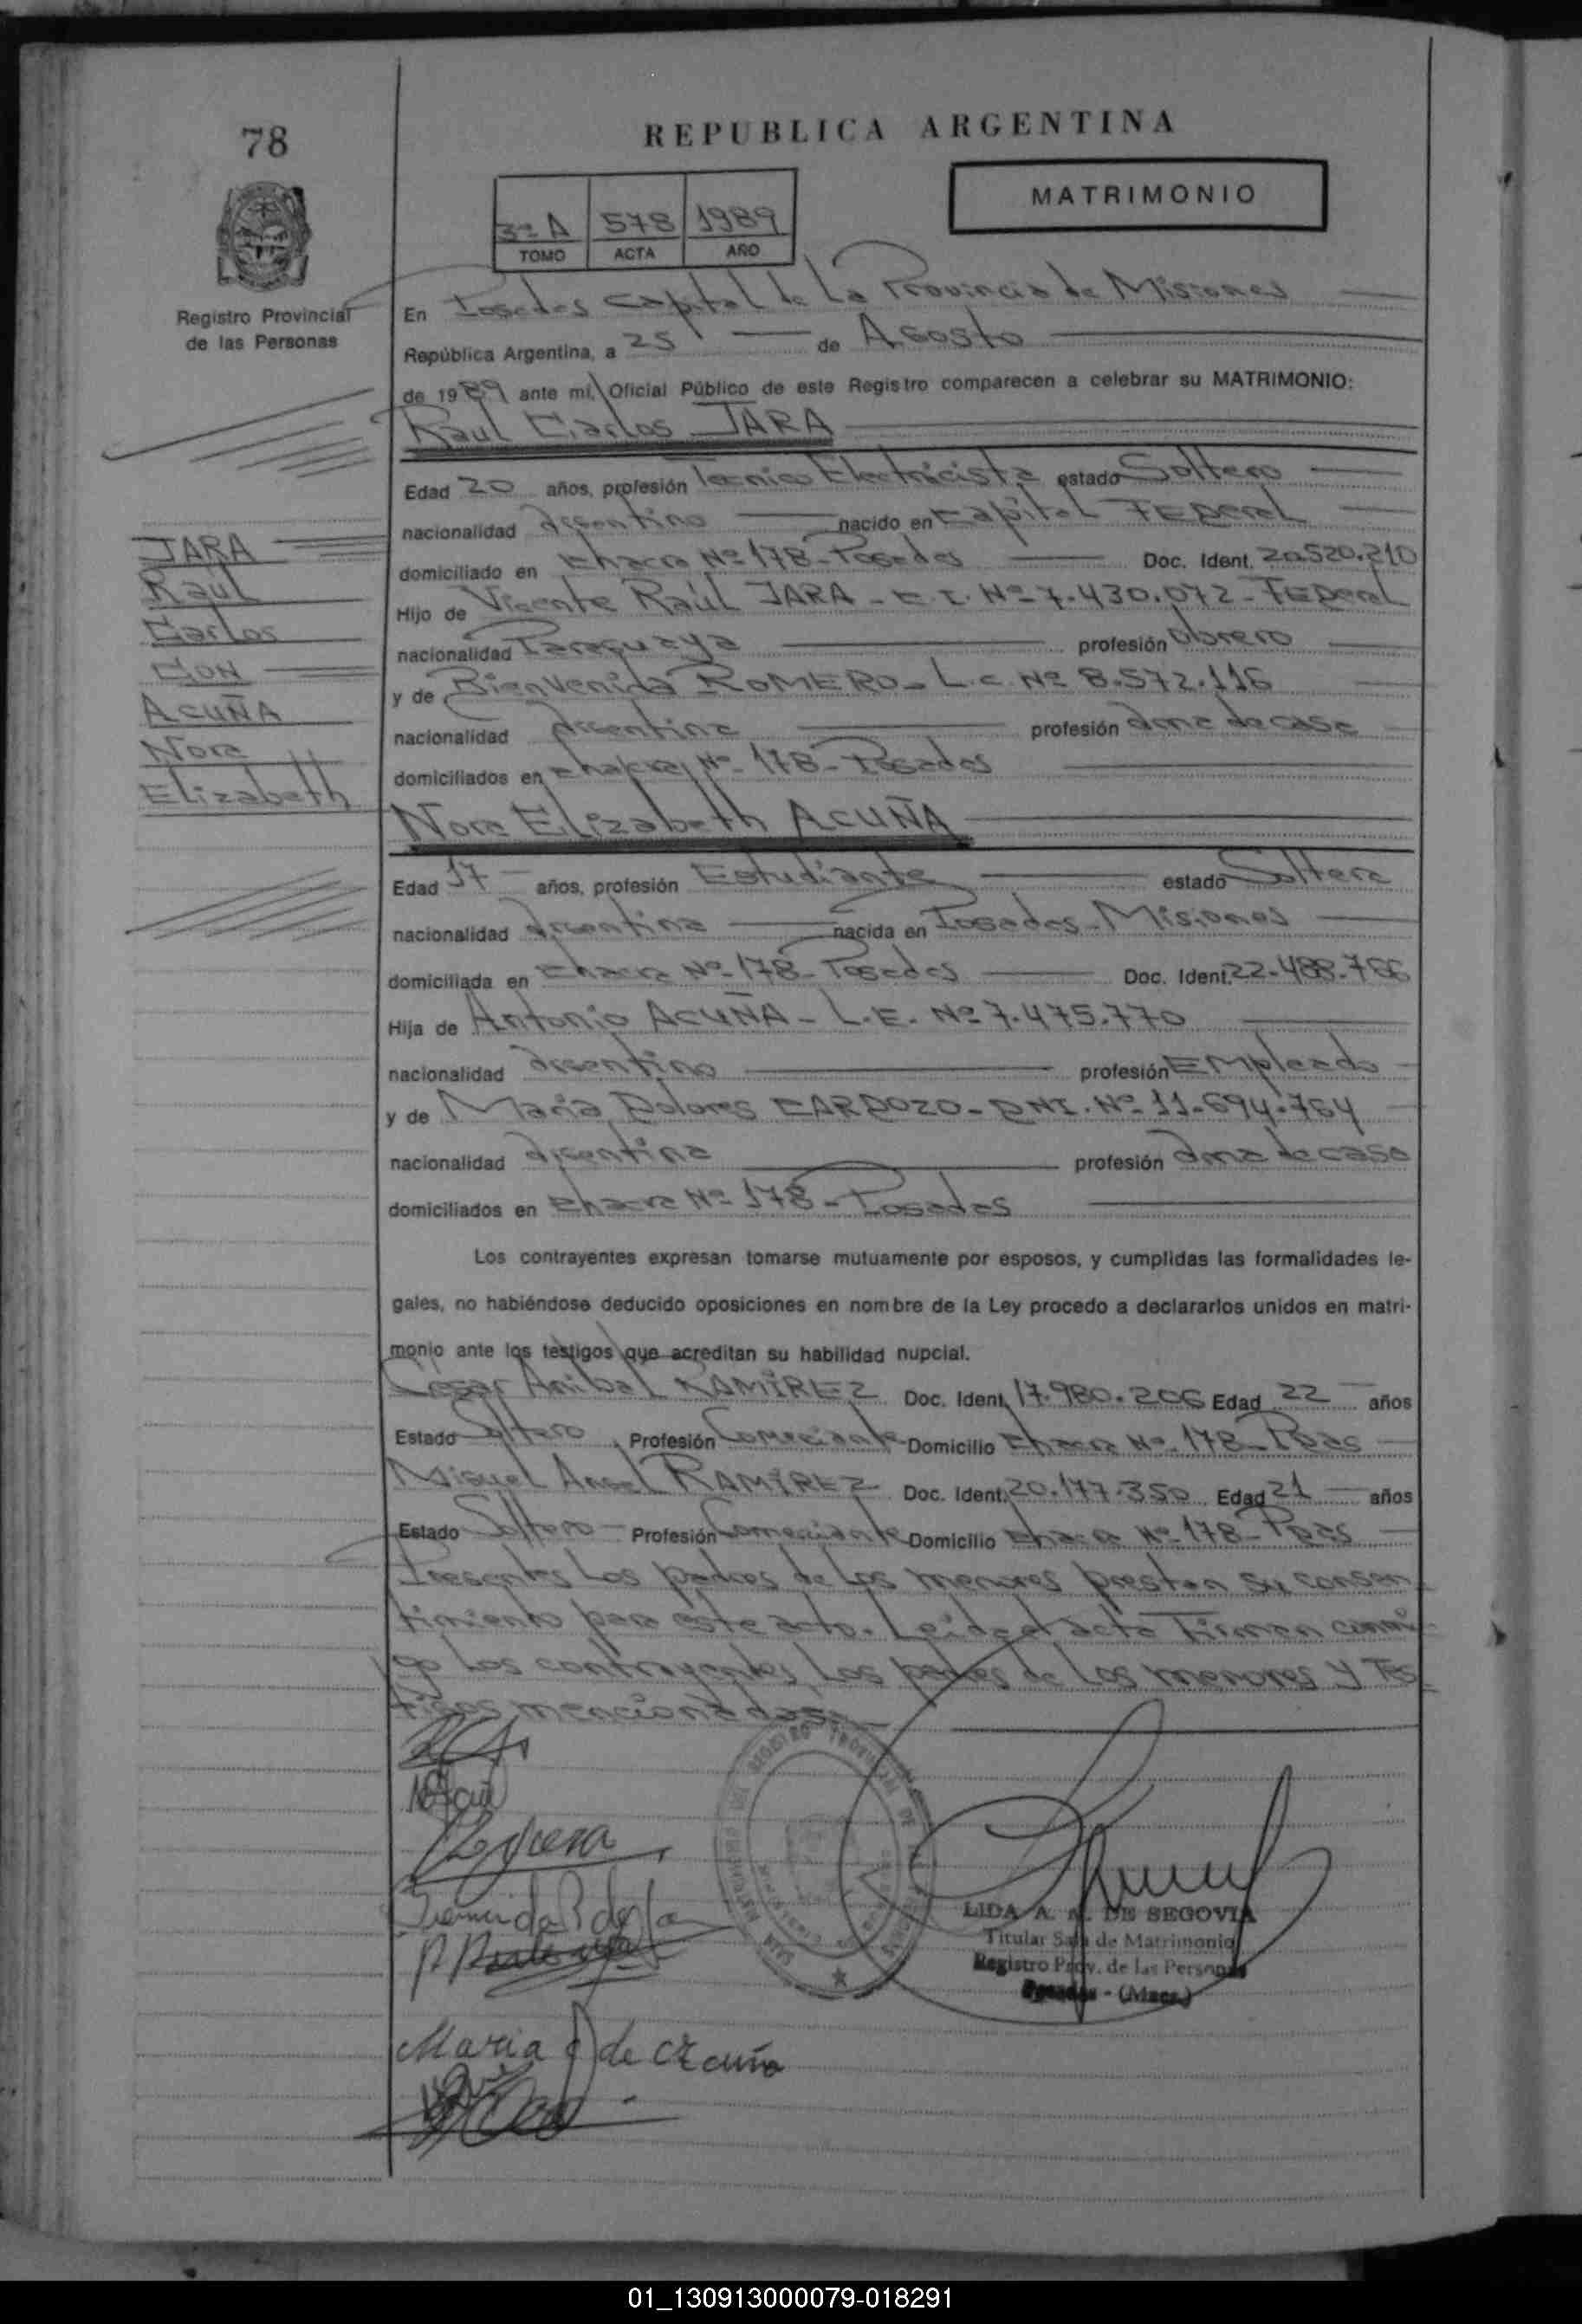 78
REPUBLICA ARGENTINA
MATRIMONIO
3º A 578 1989
TOMO ACTA AÑO
Registro Provincial
de las Personas
En Posadas Capital de La Provincia de Misiones
República Argentina, a 25 de Agosto
de 1989 ante mí, Oficial Público de este Registro comparecen a celebrar su MATRIMONIO:
Raul Carlos JARA
Edad 20 años, profesión Tecnico Electricista estado Soltero
nacionalidad Argentino nacido en Capital FEDeral
domiciliado en Chacra Nº 178-Posadas Doc. Ident. 20.520.210
Hijo de Vicente Raúl JARA - C.I. Nº 7.430.072 - FEDeral
nacionalidad Paraguaya profesión Obrero
y de Bienvenida ROMERO - L.C. Nº 8.572.116
nacionalidad Argentina profesión Ama de casa
domiciliados en Chacra Nº 178-Posadas
JARA
Raúl
Carlos
CON
ACUÑA
Nora
Elizabeth
Nora Elizabeth ACUÑA
Edad 17 años, profesión Estudiante estado Soltera
nacionalidad Argentina nacida en Posadas-Misiones
domiciliada en Chacra Nº 178-Posadas Doc. Ident. 22.488.766
Hija de Antonio ACUÑA - L.E. Nº 7.475.770
nacionalidad Argentino profesión EMpleado
y de Maria Dolores CARDOZO - DNI. Nº 11.694.764
nacionalidad Argentina profesión Ama de casa
domiciliados en Chacra Nº 178-Posadas
Los contrayentes expresan tomarse mutuamente por esposos, y cumplidas las formalidades le-
gales, no habiéndose deducido oposiciones en nombre de la Ley procedo a declararlos unidos en matri-
monio ante los testigos que acreditan su habilidad nupcial.
Cesar Anibal RAMIREZ Doc. Ident. 17.980.206 Edad 22 años
Estado Soltero Profesión Comerciante Domicilio Chacra Nº 178-Pdas
Miguel Angel RAMIREZ Doc. Ident. 20.177.350 Edad 21 años
Estado Soltero Profesión Comerciante Domicilio Chacra Nº 178-Pdas
Presentes Los padres de Los menores prestan su consen
timiento para este acto. Leida el acta Firman conmi
go Los contrayentes, Los padres de Los menores y Tes
tigos mencionados.
LIDA A. A. DE SEGOVIA
Titular Sala de Matrimonio
Registro Prov. de las Personas
Posadas - (Mnes.)
Maria de acuña
01_130913000079-018291